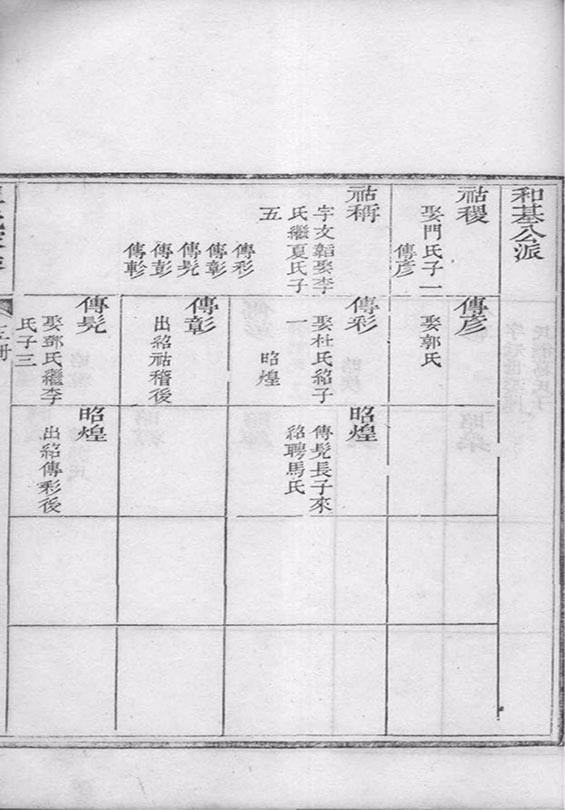 和基公派
祜稷
娶門氏子一
傳彥
傳彥
娶郭氏
祜稱
字文韜娶李
氏繼夏氏子
五
傳彩
傳彰
傳髠
傳彭
傳彰
傳彩
娶杜氏紹子
一
昭煌
昭煌
傳髠長子來
紹聘馬氏
傳彰
出紹祜稽後
傳髠
娶鄧氏繼李
氏子三
昭煌
出紹傳彩後